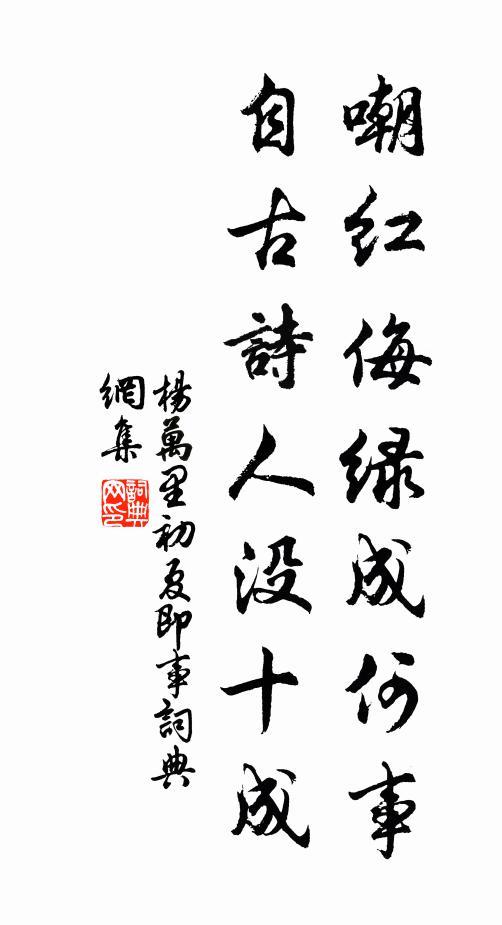 嘲红侮绿成何事
自古詩人没十成
楊萬里初夏即事詞典
網集
詞典
网印